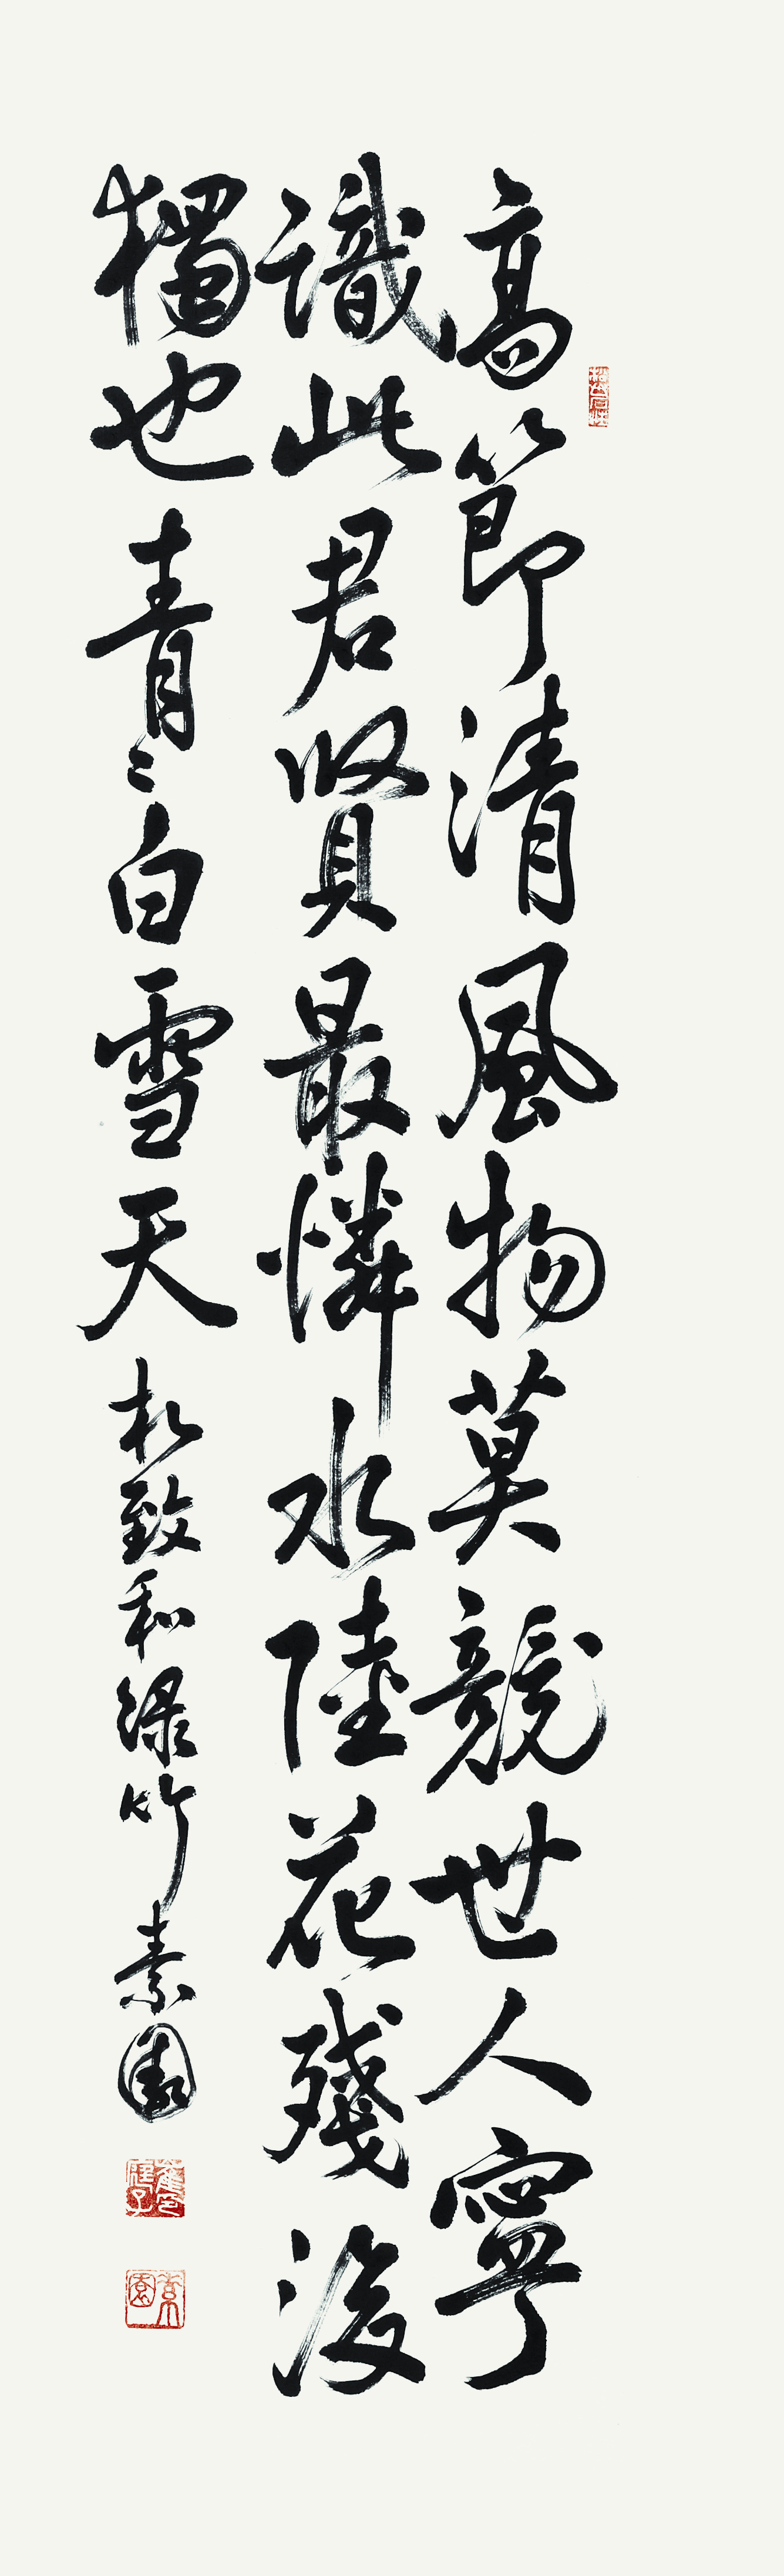 高節清風物莫競世人寧
識此君賢最憐水陸花殘後
獨也青〻白雪天 朴致和綠竹 素園
素園